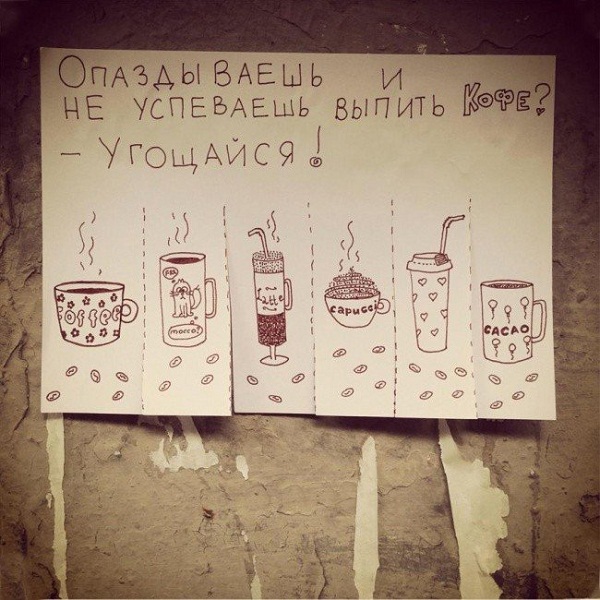 Опаздываешь и
не успеваешь выпить Кофе?
– Угощайся!
coffee
Latte
capucci
CACAO